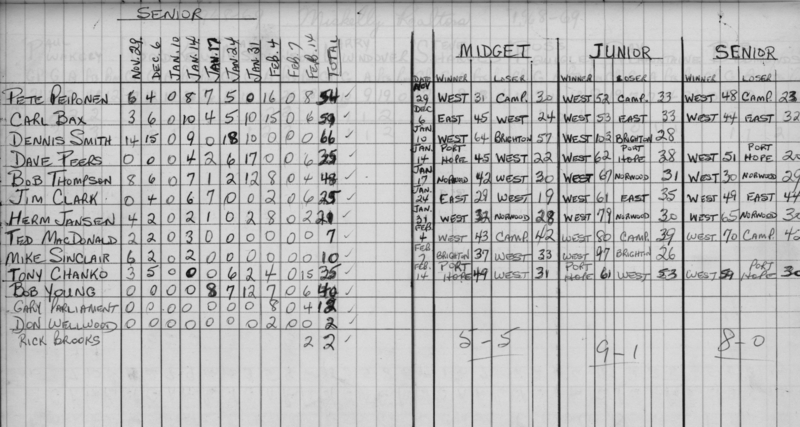 SENIOR
NOV. 29 DEC. 6 JAN. 10 JAN. 14 JAN. 17 JAN. 24 JAN. 31 FEB. 4 FEB. 7 FEB. 14 TOTAL
PETE PEIPONEN 6 4 0 8 7 5 0 16 0 8 54 ✓
CARL BAX 3 6 0 10 4 5 10 15 0 6 59 ✓
DENNIS SMITH 14 15 0 9 0 18 10 0 0 0 66 ✓
DAVE PEERS 0 0 0 4 2 6 17 0 0 6 ✓
BOB THOMPSON 8 6 0 7 1 2 12 8 0 4 48 ✓
JIM CLARK 0 4 0 6 7 0 0 2 0 6 25 ✓
HERM JANSEN 4 2 0 2 1 0 2 8 0 2 ✓
TED MACDONALD 2 2 0 3 0 0 0 0 0 0 7 ✓
MIKE SINCLAIR 6 2 0 2 0 0 0 0 0 0 10 ✓
TONY CHANKO 3 5 0 0 0 6 2 4 0 15 ✓
BOB YOUNG 0 0 0 0 8 7 12 7 0 6 40 ✓
GARY PARLIAMENT 0 0 0 0 0 0 0 8 0 4 12 ✓
DON WELLWOOD 0 0 0 0 0 0 0 2 0 0 2 ✓
RICK BROOKS 2 2 ✓
MIDGET JUNIOR SENIOR
DATE WINNER LOSER WINNER LOSER WINNER LOSER
NOV 29 WEST 31 CAMP. 30 WEST 52 CAMP. 33 WEST 48 CAMP. 23
DEC 6 EAST 45 WEST 24 WEST 53 EAST 33 WEST 44 EAST 32
JAN 10 WEST 64 BRIGHTON 57 WEST 102 BRIGHTON 28
JAN. 14 PORT HOPE 45 WEST 22 WEST 62 PORT HOPE 28 WEST 51 PORT HOPE 20
JAN 17 NORWOOD 42 WEST 30 WEST 67 NORWOOD 31 WEST 30 NORWOOD 29
JAN. 24 EAST 29 WEST 19 WEST 61 EAST 35 WEST 49 EAST 44
JAN. 31 WEST 32 NORWOOD 28 WEST 79 NORWOOD 30 WEST 65 NORWOOD 30
FEB. 4 WEST 43 CAMP. 42 WEST 80 CAMP. 39 WEST 70 CAMP. 42
FEB 7 BRIGHTON 37 WEST 33 WEST 97 BRIGHTON 26
FEB. 14 PORT HOPE 49 WEST 31 PORT HOPE 61 WEST 53 WEST 59 PORT HOPE 30
5-5 9-1 8-0